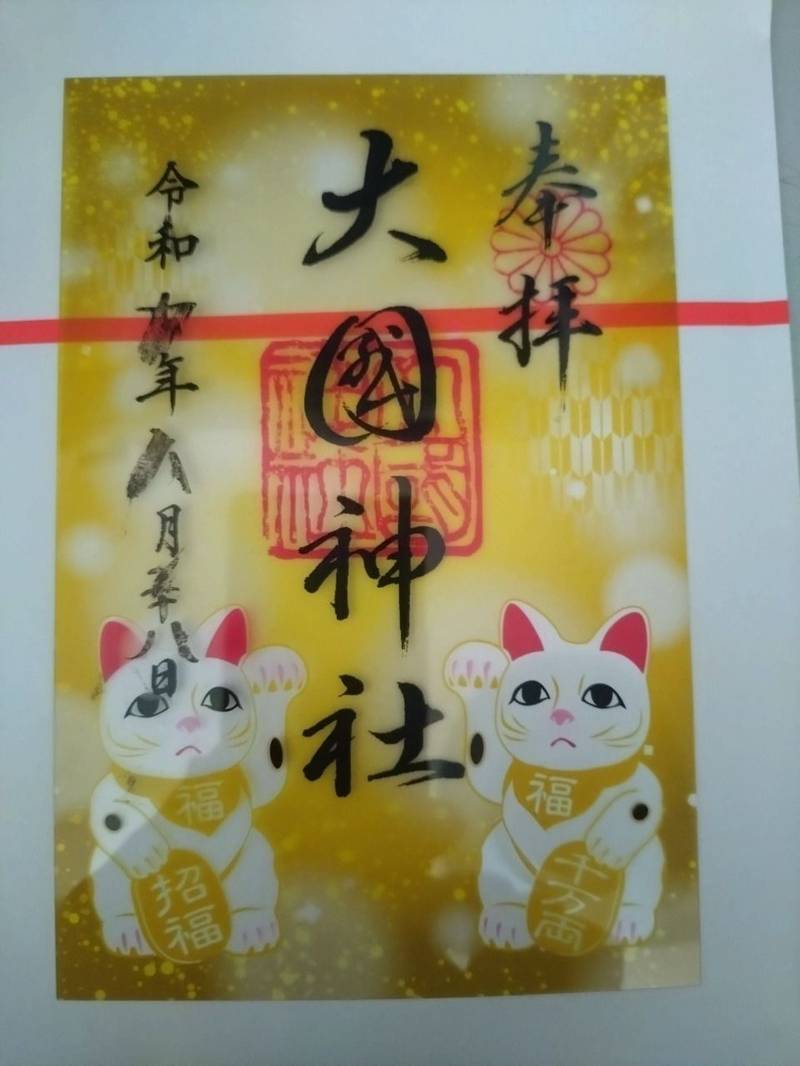 奉拝
大國神社
令和 年八月 八日
福
招福
福
千万両